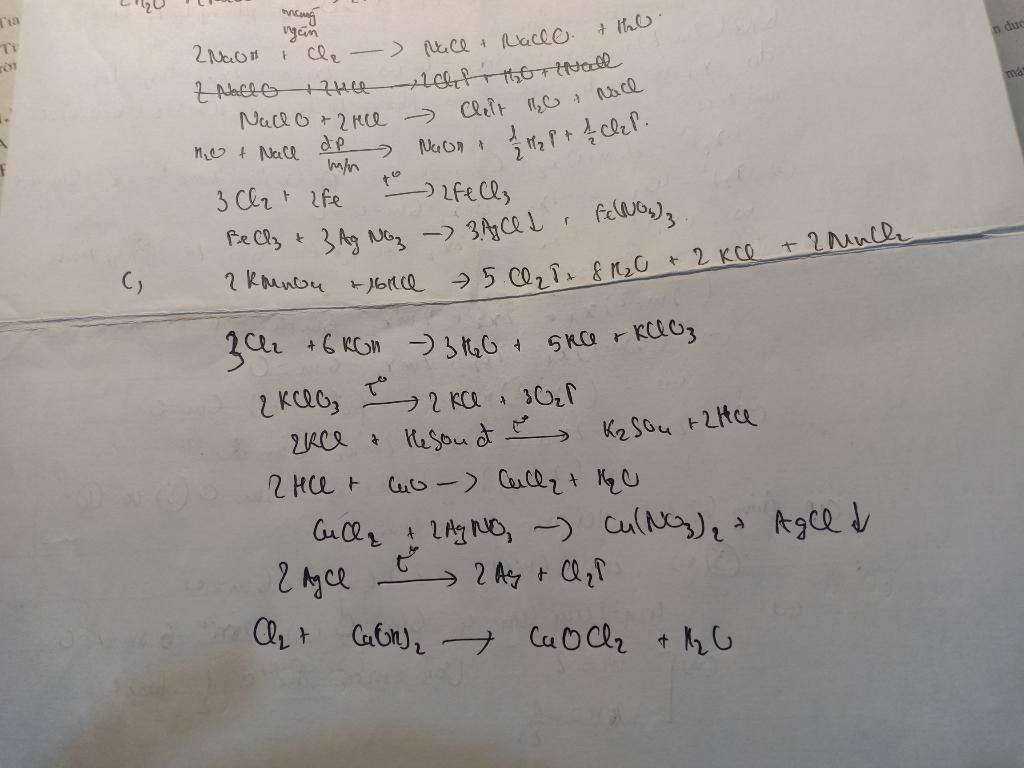 màng
ngăn
2NaOH + Cl₂ → NaCl + NaClO + H₂O.
2 NaClO + 2HCl → 2Cl₂↑ + H₂O + 2NaCl
NaClO + 2HCl → Cl₂↑ + H₂O + NaCl
H₂O + NaCl đp m/n → NaOH + 1/2 H₂↑ + 1/2 Cl₂↑.
3Cl₂ + 2Fe t° → 2FeCl₃
FeCl₃ + 3AgNO₃ → 3AgCl↓, Fe(NO₃)₃.
C, 2KMnO₄ + 16HCl → 5Cl₂↑ + 8H₂O + 2KCl + 2MnCl₂
3Cl₂ + 6KOH → 3H₂O + 5KCl + KClO₃
2KClO₃ t° → 2KCl + 3O₂↑
2KCl + H₂SO₄ đ t° → K₂SO₄ + 2HCl
2HCl + CuO → CuCl₂ + H₂O
CuCl₂ + 2AgNO₃ → Cu(NO₃)₂ + AgCl↓
2AgCl t° → 2Ag + Cl₂↑
Cl₂ + Ca(OH)₂ → CaOCl₂ + H₂O